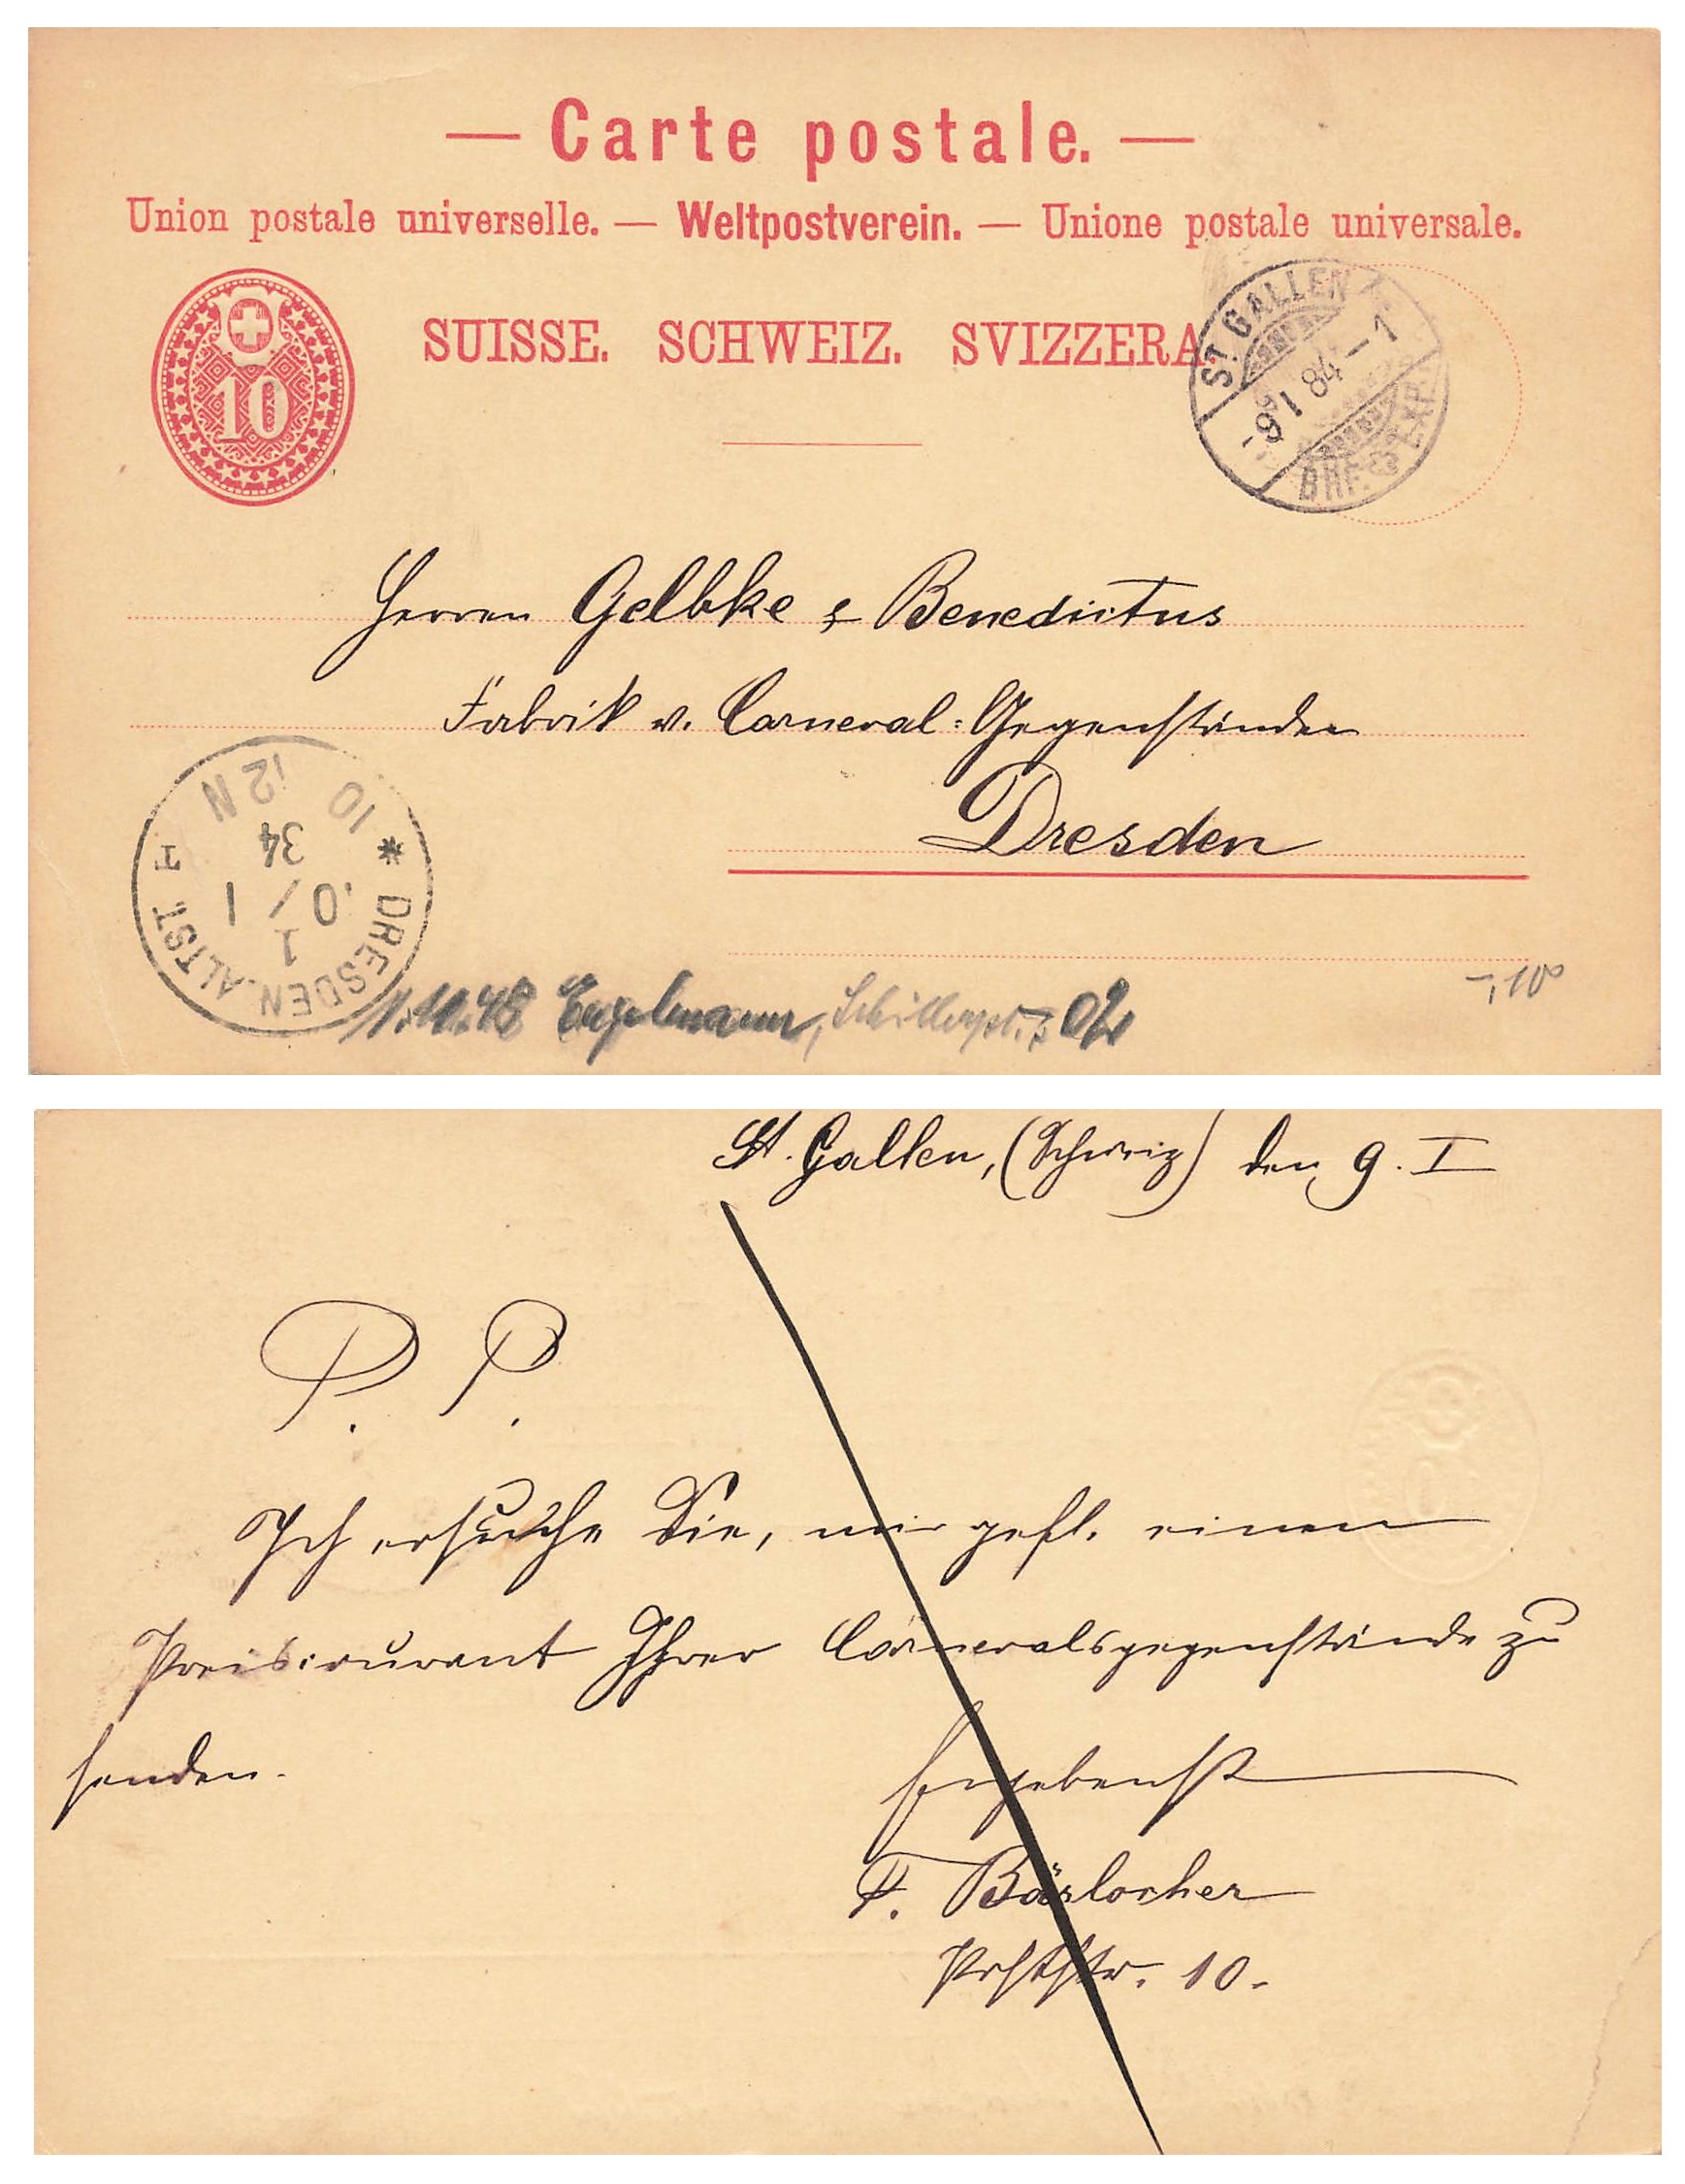 — Carte postale. —
Union postale universelle. — Weltpostverein. — Unione postale universale.
10
SUISSE. SCHWEIZ. SVIZZERA.
ST. GALLEN
-9 I 84 - 1
BRF. EXP.
Herren Gelbke & Benedictus
Fabrik v. Carneval-Gegenständen
Dresden
DRESDEN ALTST
10/1
84
1.11.48 Engelmann, Schillerpl.
-,10
St. Gallen, (Schweiz) den 9. I
P. P.
Ich ersuche Sie, mir gefl. einen
Preiscourant Ihrer Carnevalsgegenstände zu
senden.
Ergebenst
F. Bärlocher
Poststr. 10.